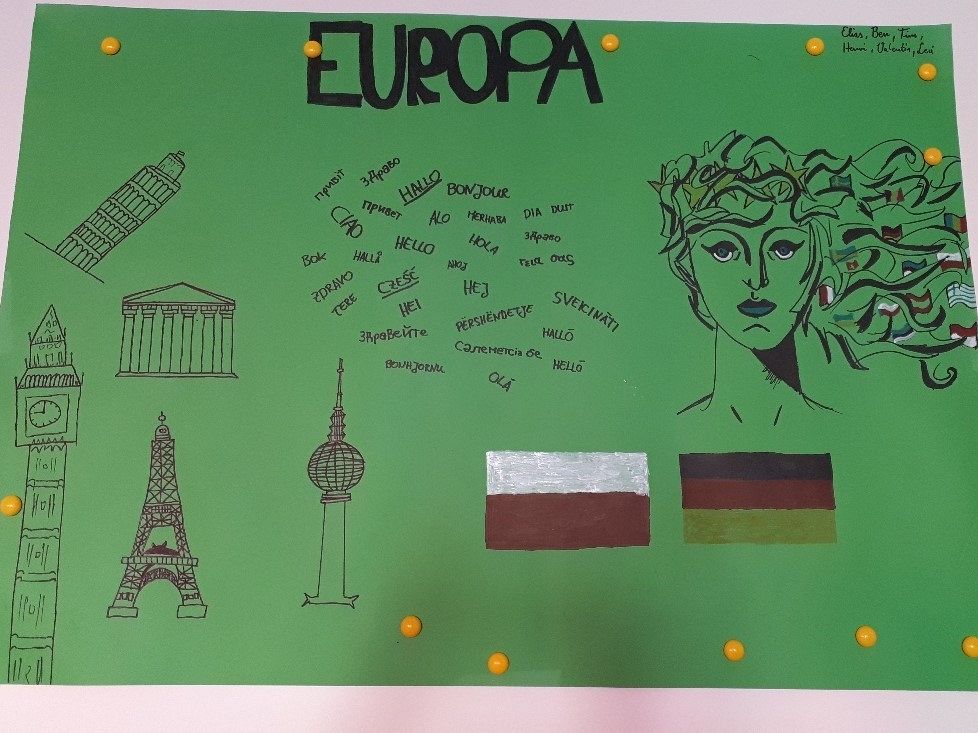 EUROPA
Elias, Ben, Tim,
Henri, Valentin, Levi
привіт
здраво
HALLO
BONJOUR
CIAO
привет
ALO
MERHABA
DIA DUIT
HELLO
HOLA
здраво
BOK
HALLÅ
AHOJ
γεια σας
ZDRAVO
CZEŚĆ
HEJ
TERE
HEI
SVEICINĀTI
Здравейте
PËRSHËNDETJE
HALLÓ
Сәлеметсіз бе
BONHJORNU
HELLÓ
OLÁ